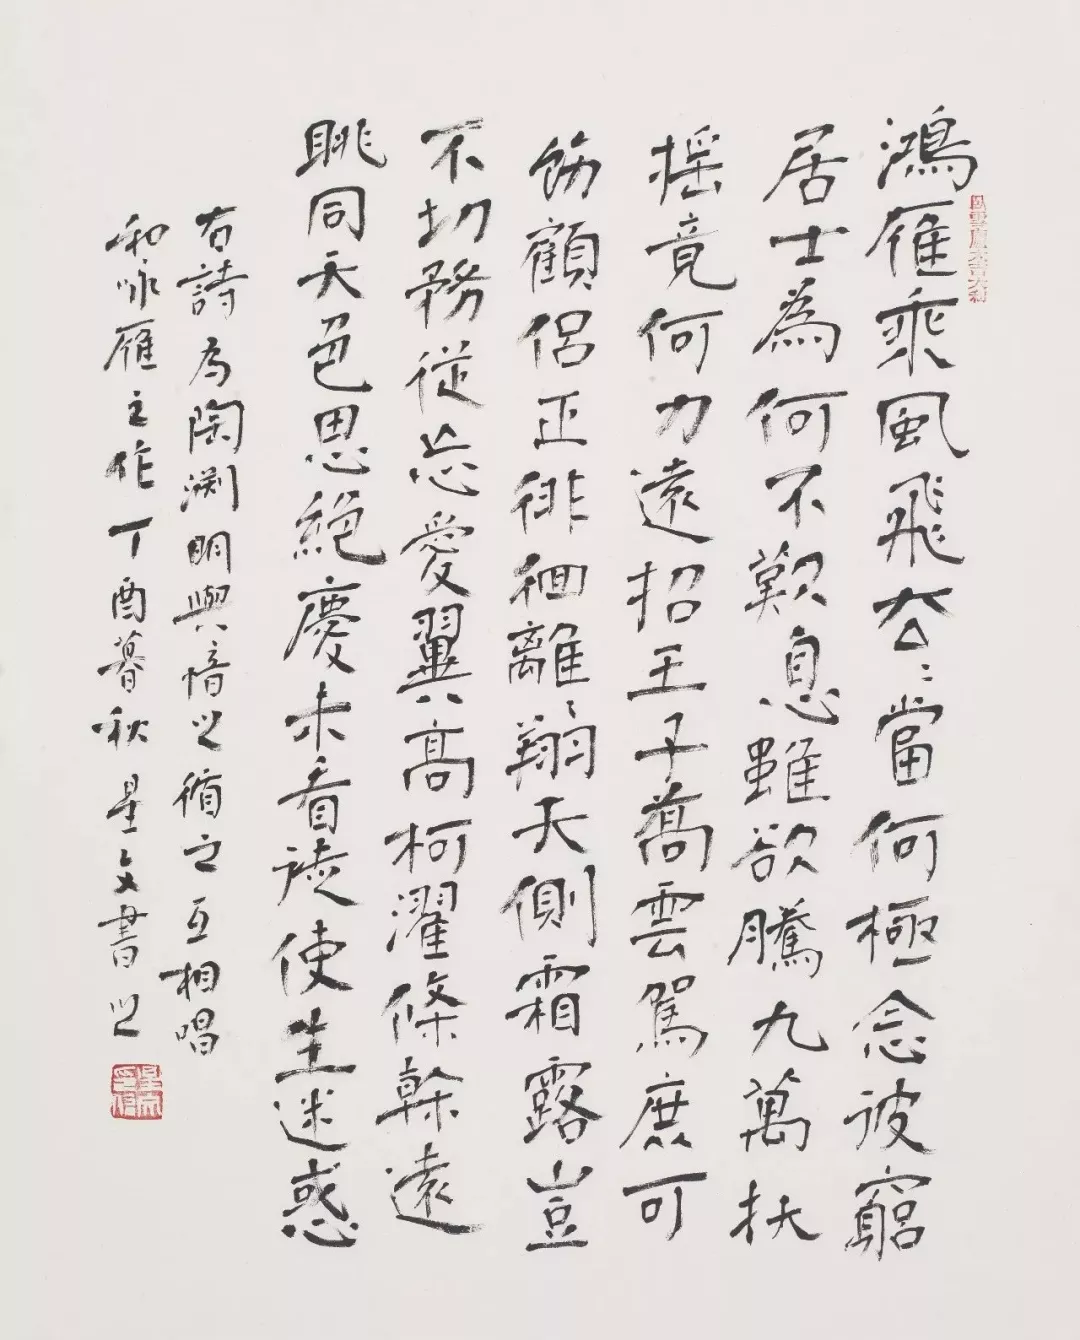 鴻雁乘風飛去〻當何極念彼窮
居士為何不歎息雖欲騰九萬扶
搖竟何力遠招王子喬雲駕庶可
飭顧侶正徘徊離〻翔天側霜露豈
不切務從忘愛翼高柯濯條幹遠
眺同天色思絕慶未看徒使生迷惑
右詩為陶淵明與愔之循之互相唱
和咏雁之作丁酉暮秋星文書之